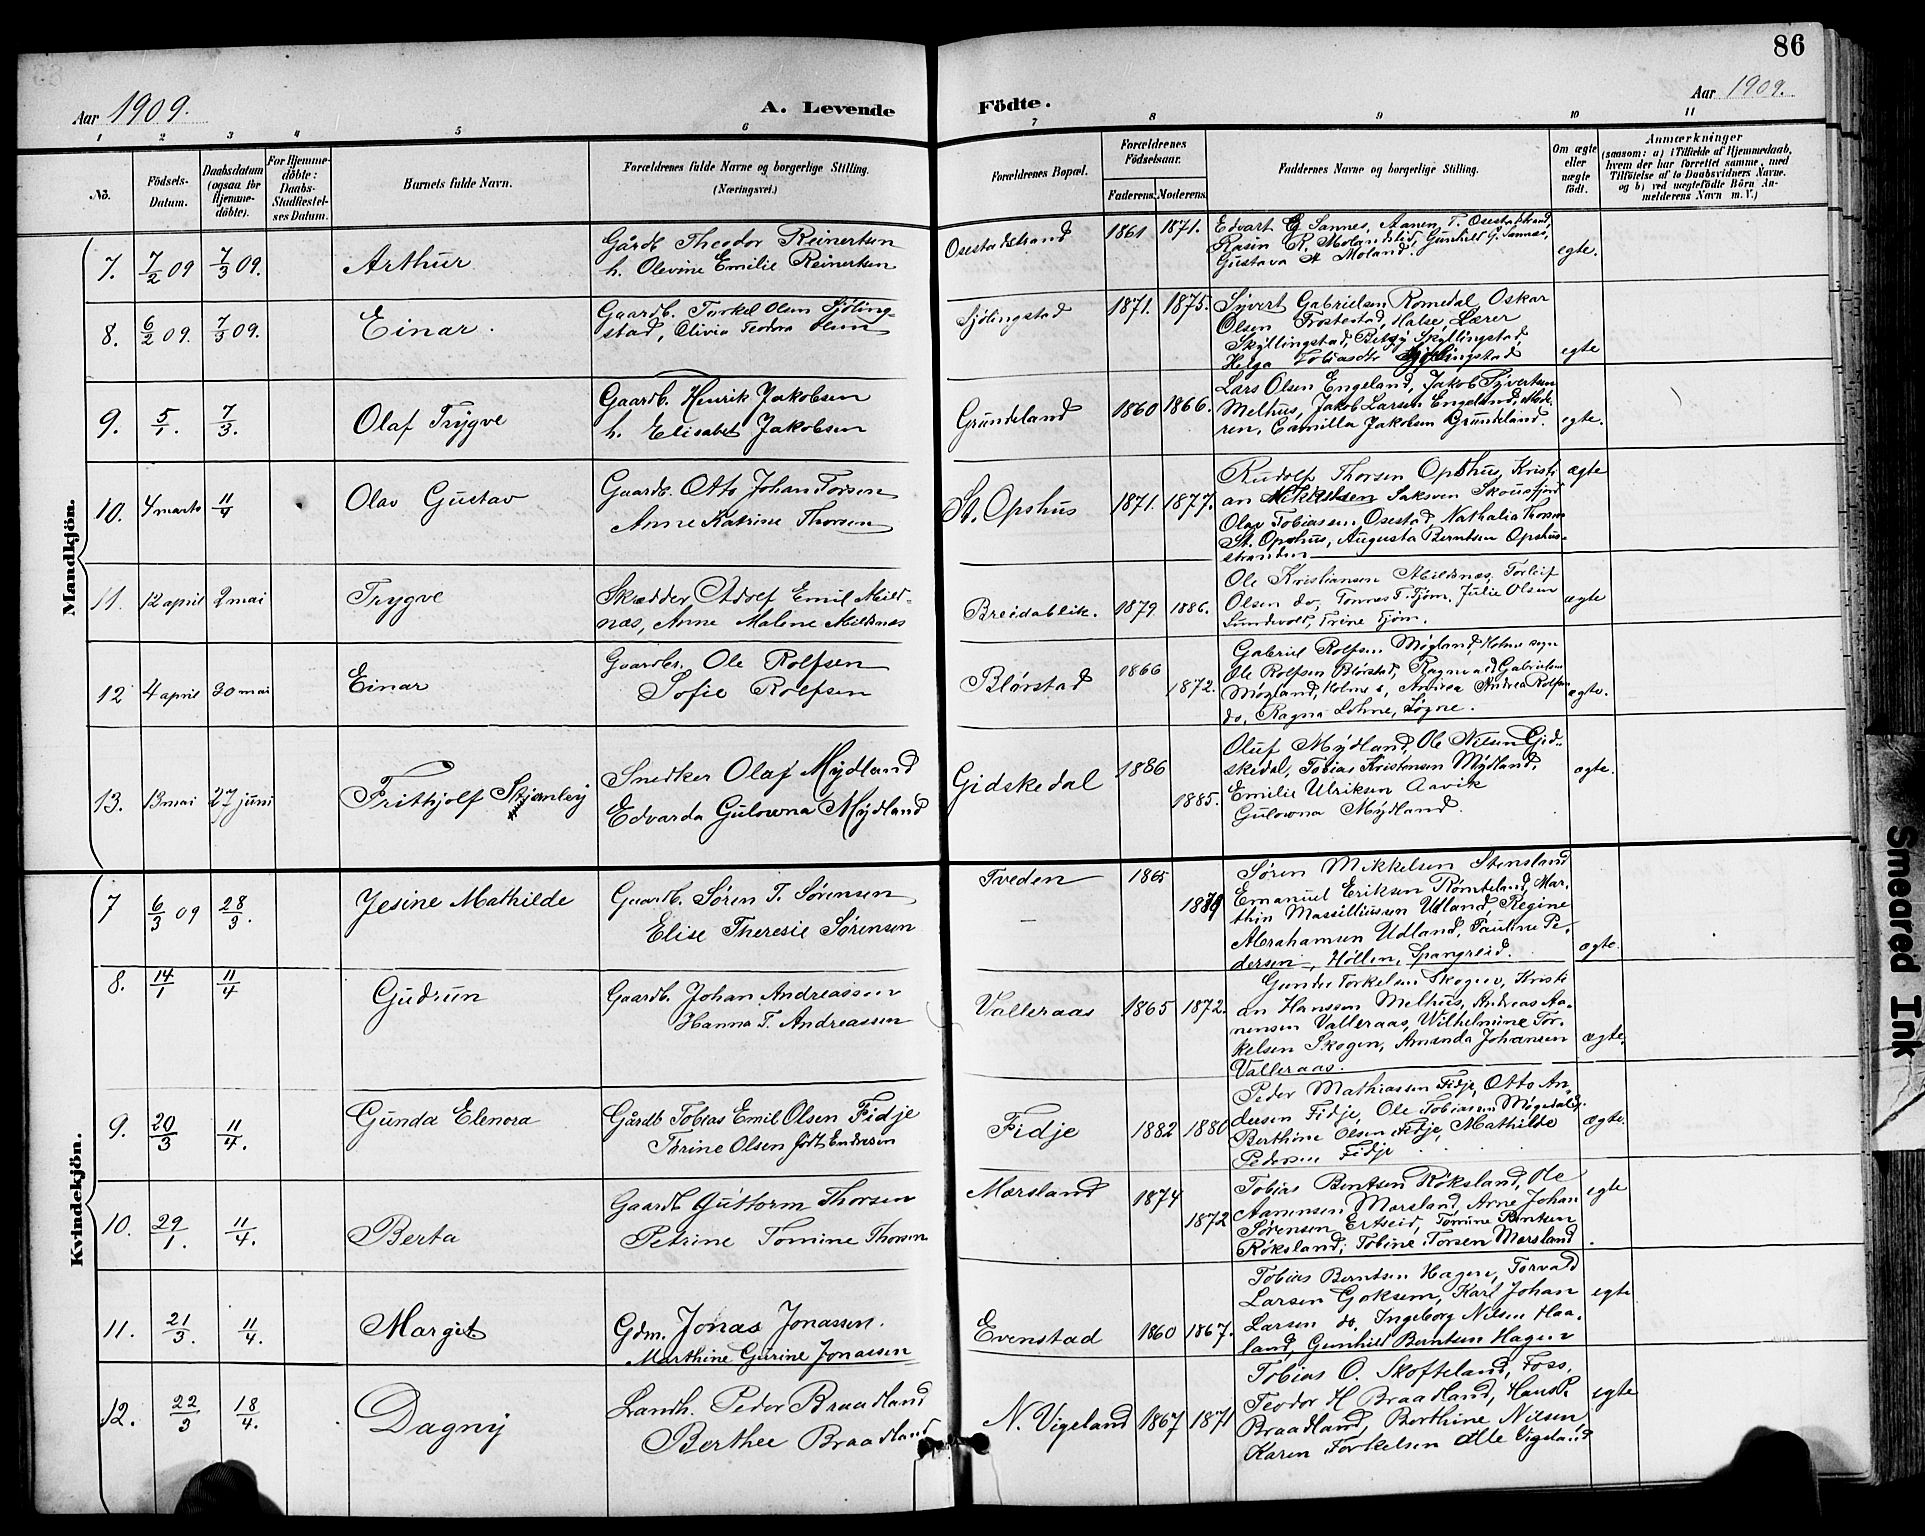 86
Aar 1909. A. Levende Födte. Aar 1909.
1 2 3 4 5 6 7 8 9 10 11
No. Födsels-Datum. Daabsdatum (ogsaa for Hjemme-döbte). For Hjemme-döbte: Daabs-Stadfæstel-ses Datum. Barnets fulde Navn. Forældrenes fulde Navne og borgerlige Stilling. (Næringsvei.) Forældrenes Bopæl. Forældrenes Födselsaar. Faderens. Moderens. Faddernes Navne og borgerlige Stilling. Om ægte eller uægte födt. Anmærkninger (saasom: a) i Tilfælde af Hjemmedaab, hvem der har forrettet samme, med Tilföielse af to Daabsvidners Navne. og b) ved uægtefödte Börn An-melderens Navn m. V.)
Mandkjön.
7. 7/2 09 7/3 09. Arthur Gårdb. Theodor Reinertsen
h. Olevine Emilie Reinertsen
Osestadstrand 1861 1871. Edvart G Sannes, Aanen T. Osestadstrand,
Rasin R. Molandslid, Gunhild G. Sannes,
Gustava A Moland. egte.
8. 6/2 09. 7/3 09. Einar. Gaardb. Torkel Olsen Sjöling-
stad, Olivia Teodora Olsen
Sjölingstad 1871. 1875. Syvert Gabrielsen Romedal Oskar
Olsen Frostestad, Halse, Lærer
Skyllingstad, Betzy Skyllingstad,
Helga Tobiasdtr Sjølingstad egte
9. 5/1. 7/3. Olaf Trygve Gaardb. Henrik Jakobsen
h. Elisabet Jakobsen
Grundeland 1860 1866. Lars Olsen Engeland, Jakob Syvertsen
Melhus, Jakob Larsen Engeland, Mode-
ren, Camilla Jakobsen Grundeland. egte.
10. 4 marts 11/4 Olav Gustav Gaardb. Otto Johan Torsen
Anne Katrine Thorsen
St. Opshus 1871. 1877. Rudolf Thorsen Opshus, Kristi-
an Mikkelsen Saksen Skousfjord
Olav Tobiassen Osestad, Nathalia Thorsen
St. Opshus, Augusta Berntsen Opshus-
stranden ægte
11. 12 april 2 mai Trygve Skrædder Adolf Emil Mild-
næs, Anne Malene Mildnæs
Breidablik. 1879 1886. Ole Kristiansen Mildsnæs, Torleif
Olsen do, Tønnes T. Fjom. Julie Olsen
Lundevold, Trine Tjöm. ægte
12 4 april 20 mai Einar Gaardbr. Ole Rolfsen
Sofie Rolfsen
Blörstad 1866 1872. Gabriel Rolfsen Mögland, Holme sogn
Ole Rolfsen Blörstad, Ragnvald Gabrielsen
Mögland, Holme s, Andrea Rolfsen
do, Ragna Lohne, Søgne. ægte.
13. 13 mai 27 juni Frithjolf Stjernley Snedker Olaf Mydland
Edvarda Gulowna Mydland
Gidskedal 1886 1885. Oluf Mydland, Ole Nilsen Gid-
skedal, Tobias Kristensen Mydland,
Emilie Ulriksen Aavik
Gulowna Mydland. ægte.
Kvindekjön.
7 6/3 09 28/3. Jesine Mathilde Gaardb. Sören T. Sørensen
Elise Theresie Sørensen
Tveden 1865 1889 Søren Mikkelsen Stensland
Emanuel Eriksen Römteland, Mar-
thin Massilliussen Udland, Regine
Abrahamsen Udland, Pauline Pe-
dersen, Höllen, Spangreid. ægte.
8. 14/1 11/4 Gudrun Gaardb. Johan Andreassen
Hanna T. Andreassen
Valleraas 1865 1872. Gunder Torkelsen Skogen, Kristi-
an Hanssen Melhus, Andreas Aa-
nensen Valleraas, Wilhelmine Tor-
kelsen Skogen, Amanda Johansen
Valleraas. ægte.
9. 20/3 11/4. Gunda Elenora Gårdb Tobias Emil Olsen Fidje
Torine Olsen født Endresen
Fidje 1882 1880 Peder Mathiassen Fidje, Otto An-
dersen Fidje, Ole Tobiassen Møgedal,
Berthine Olsen Fidje, Mathilde
Pedersen Fidje ægte.
10. 29/1. 11/4. Berta Gaardb Guttorm Thorsen
Petrine Tomine Thorsen
Marsland 1874 1872 Tobias Berntsen Röksland, Ole
Aanensen Marsland, Arne Johan
Sørensen Ertseid, Tomine Berntsen
Röksland, Tobine Torsen Marsland. egte
11. 21/3. 11/4. Margit Gdm. Jonas Jonassen.
Marthine Gurine Jonassen
Evenstad 1860 1867. Tobias Berntsen Hagen, Torvald
Larsen Goksem, Karl Johan
Larsen do, Ingeborg Nilsen Haa-
land, Gunhild Berntsen Hagen egte
12. 22/3 18/4. Dagny Landh. Peder Braadland
Berthee Braadland
N. Vigeland 1867 1871 Tobias O. Skofteland, Foss,
Teodor H Braadland, Hans P.
Braadland, Berthine Nilsen,
Karen Torkelsen alle Vigeland egte
Smeared Ink